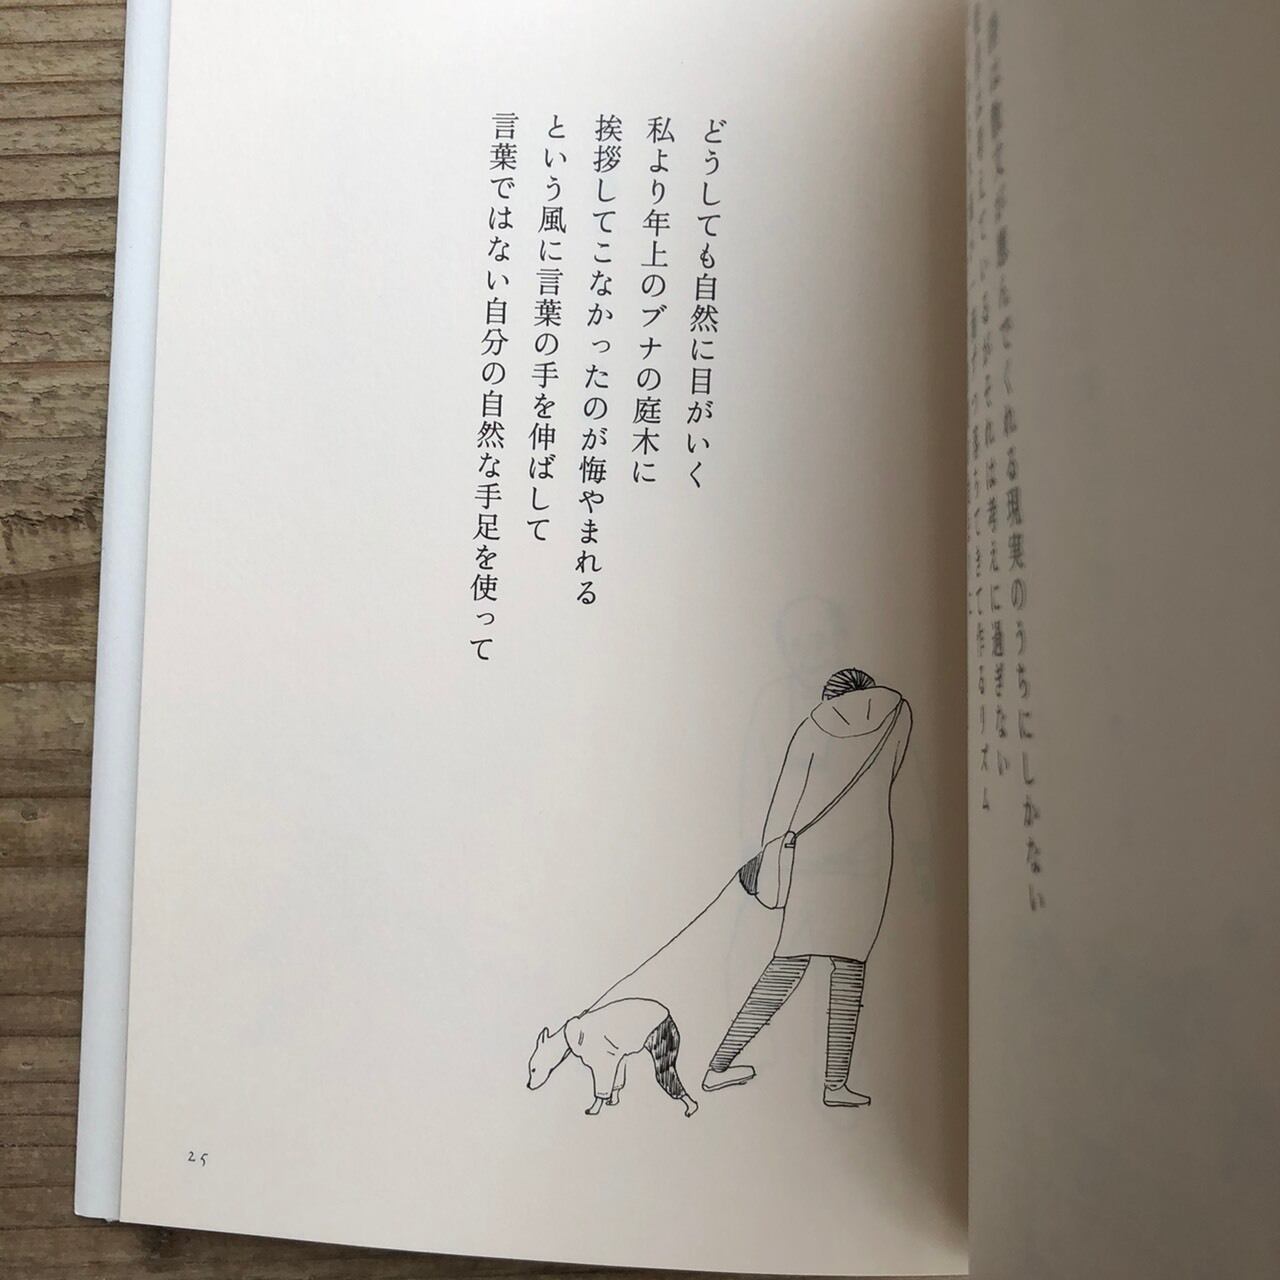 どうしても自然に目がいく
私より年上のブナの庭木に
挨拶してこなかったのが悔やまれる
という風に言葉の手を伸ばして
言葉ではない自分の自然な手足を使って
25
んでくれる現実のうちにしかない
えているがそれは考えに過ぎない
ちてきて作るリズム